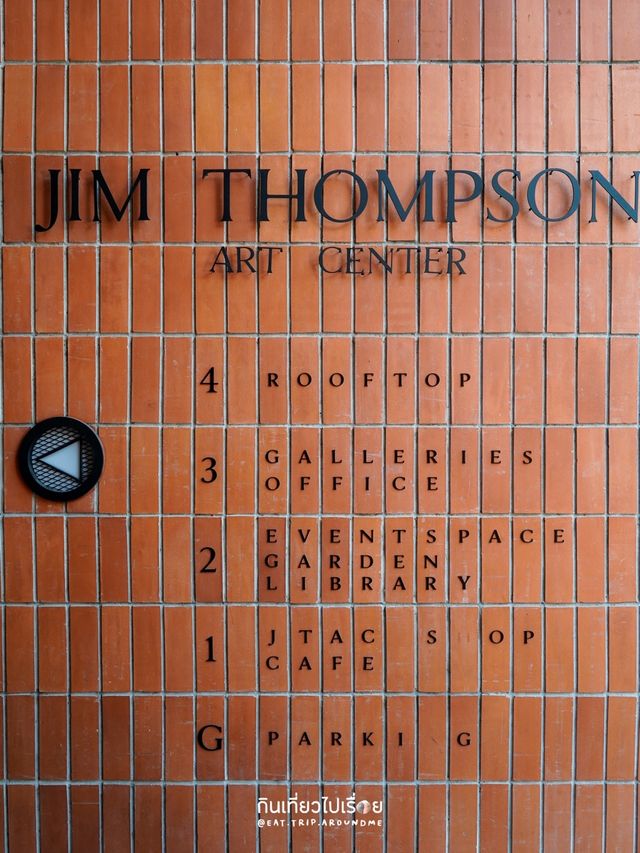 JIM THOMPSON
ART CENTER
4 ROOFTOP
3 GALLERIES
OFFICE
2 EVENTSPACE
GARDEN
LIBRARY
1 JTAC S OP
CAFE
G PARKI G
กินเที่ยวไปเรื่อย
@EAT.TRIP.AROUNDME